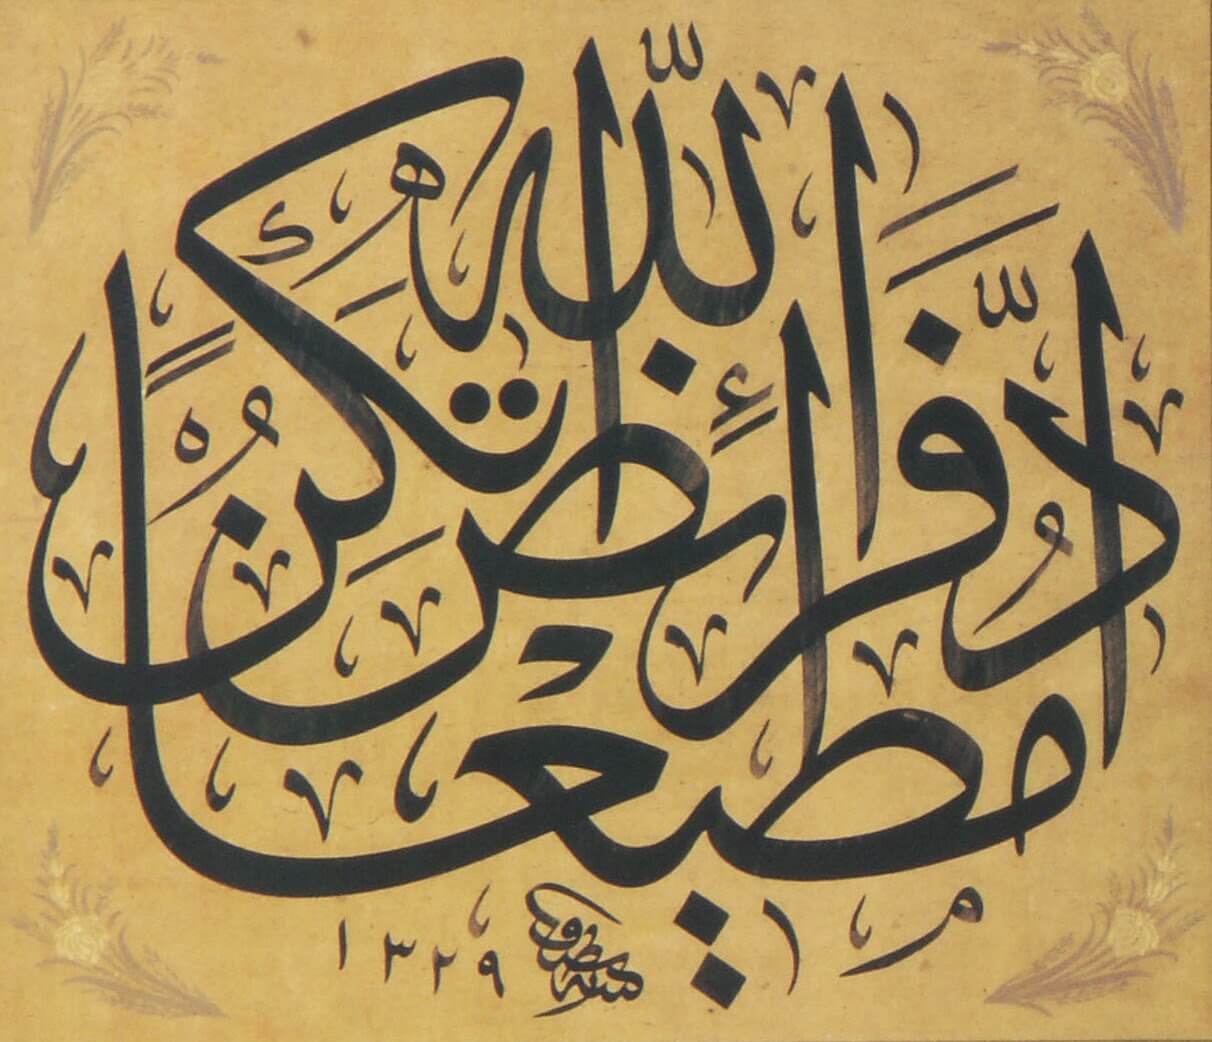 ادِّ فَرَائِضَ اللّٰهِ تَكُنْ مُطِيعًا
١٣٢٩